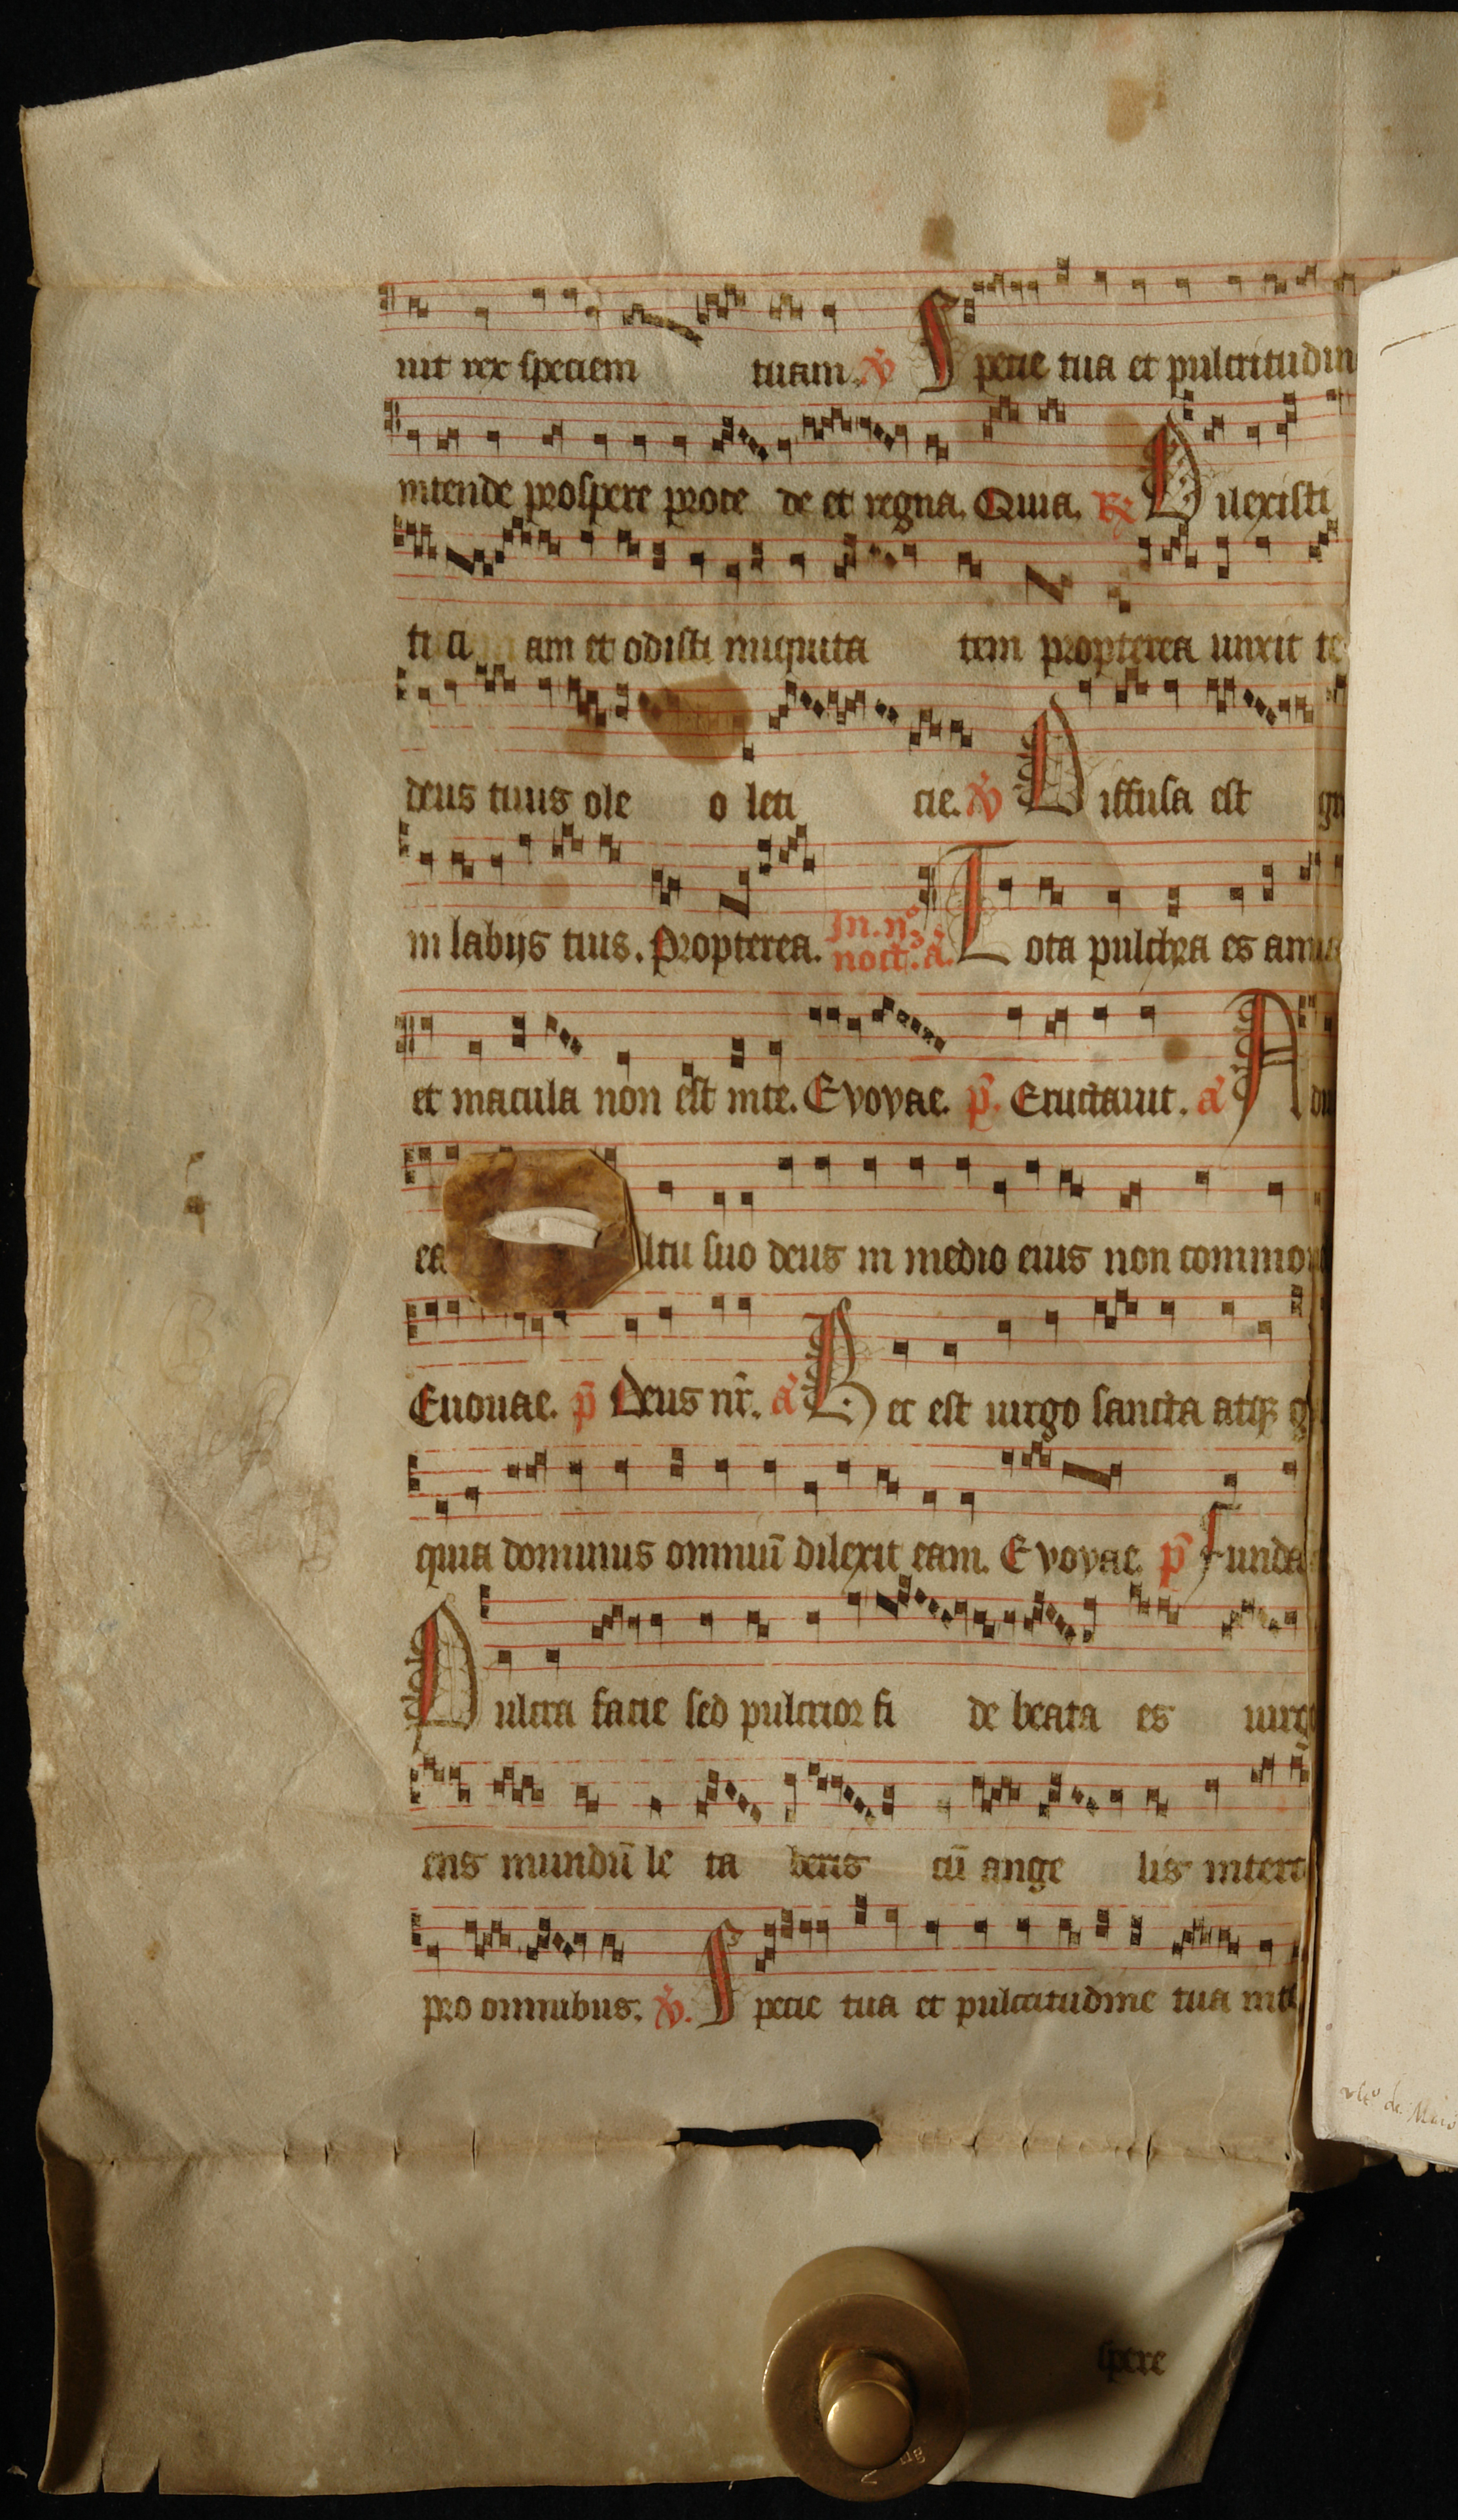 uit rex speciem tuam. V̉ Specie tua et pulcritudin
intende prospere proce de et regna. Quia. R̷ Dilexisti
ti ci am et odisti iniquita tem propterea unxit te
deus tuus ole o leti cie. V̉ Diffusa est
in labijs tuis. Propterea. In. iiº. noct. a. Tota pulchra es amica
et macula non est in te. Evovae. p̄. Eructauit. a Adiu
ea ltu suo deus in medio eius non commo
Euouae. p̄ Deus nr̄. a Hec est uirgo sancta atqꝫ
quia dominus omniū dilexit eam. Evovae. p̄ Funda
Pulcra facie sed pulcrior fi de beata es uirg
ens mundū le ta beris cū ange lis interc
pro omnibus. V̉. Specie tua et pulcritudine tua inte
spere